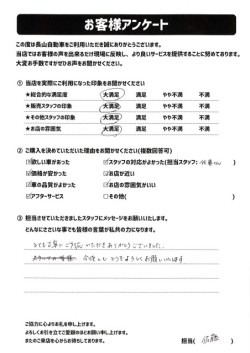 お客様アンケート
この度は長山自動車をご利用いただき誠にありがとうございます。
当店ではお客様の声を出来るだけ現場に反映し、より良いサービスを提供することに努めております。
大変お手数ですがぜひお声をお聞かせください。
① 当店を実際にご利用になった印象をお聞かせください
★総合的な満足度 大満足 満足 やや不満 不満
★販売スタッフの印象 大満足 満足 やや不満 不満
★その他スタッフの印象 大満足 満足 やや不満 不満
★お店の雰囲気 大満足 満足 やや不満 不満
② ご購入を決めていただいた理由をお聞かせください(複数回答可)
欲しい車があった スタッフの対応がよかった(担当スタッフ: 佐藤さん)
価格が安かった お店が近い
車の品質がよかった お店の雰囲気がいい
アフターサービス その他( )
③ 担当させていただきましたスタッフにメッセージをお願いいたします。
どんなにささいな事でも皆様の言葉が私共の力になります。
とても丁寧にご対応いただきありがとうございました。
今後とも どうぞよろしくお願いいたします
ご協力に心よりお礼を申し上げます。
よろしく お引き立てご愛顧のほどお願い申し上げます。
またのご来店を心からお待ちしております。
担当( 佐藤 )